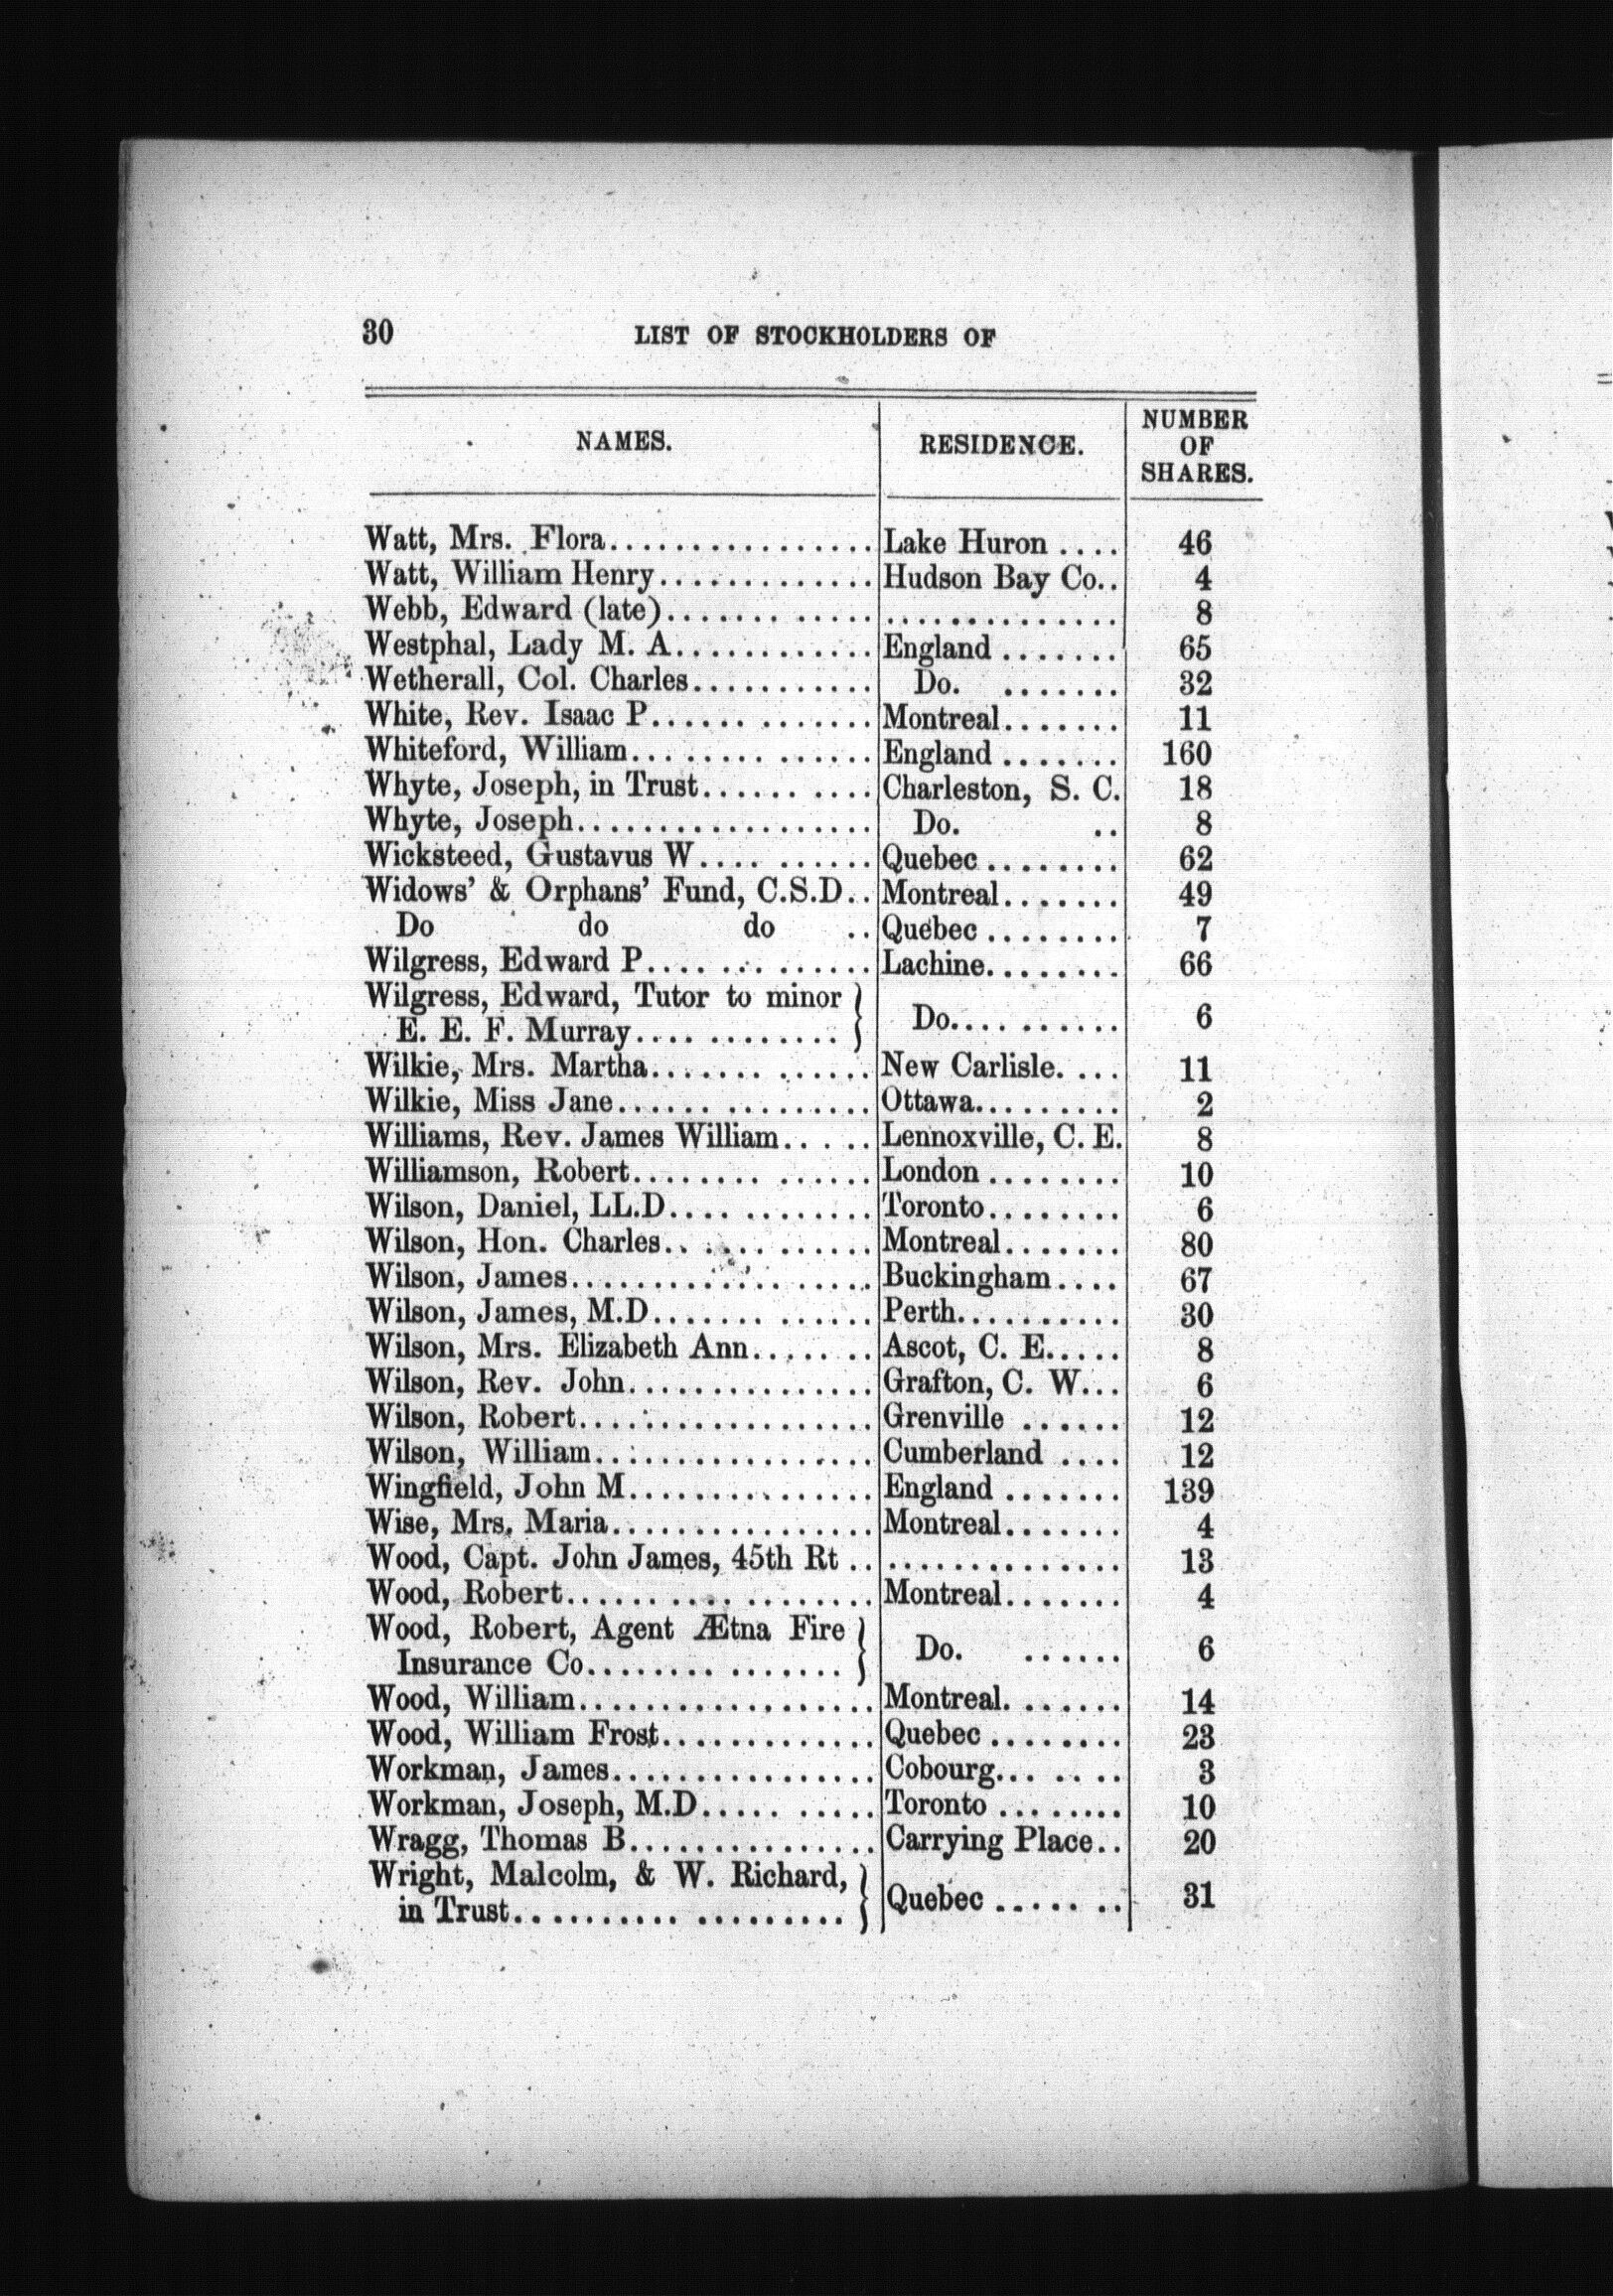 30 LIST OF STOCKHOLDERS OF
NAMES. RESIDENCE. NUMBER OF SHARES.
Watt, Mrs. Flora................ Lake Huron .... 46
Watt, William Henry............. Hudson Bay Co.. 4
Webb, Edward (late)............. .............. 8
Westphal, Lady M. A............. England ....... 65
Wetherall, Col. Charles........... Do. ....... 32
White, Rev. Isaac P............. Montreal....... 11
Whiteford, William.............. England ....... 160
Whyte, Joseph, in Trust.......... Charleston, S. C. 18
Whyte, Joseph.................. Do. .. 8
Wicksteed, Gustavus W.......... Quebec ........ 62
Widows' & Orphans' Fund, C.S.D.. Montreal....... 49
Do do do .. Quebec ........ 7
Wilgress, Edward P.............. Lachine........ 66
Wilgress, Edward, Tutor to minor
E. E. F. Murray............. } Do.......... 6
Wilkie, Mrs. Martha............. New Carlisle. ... 11
Wilkie, Miss Jane............... Ottawa......... 2
Williams, Rev. James William..... Lennoxville, C. E. 8
Williamson, Robert.............. London ........ 10
Wilson, Daniel, LL.D............ Toronto........ 6
Wilson, Hon. Charles............ Montreal....... 80
Wilson, James.................. Buckingham.... 67
Wilson, James, M.D............. Perth.......... 30
Wilson, Mrs. Elizabeth Ann....... Ascot, C. E..... 8
Wilson, Rev. John............... Grafton, C. W... 6
Wilson, Robert.................. Grenville ...... 12
Wilson, William................. Cumberland .... 12
Wingfield, John M............... England ....... 139
Wise, Mrs. Maria................ Montreal....... 4
Wood, Capt. John James, 45th Rt .. .............. 13
Wood, Robert................... Montreal....... 4
Wood, Robert, Agent Ætna Fire
Insurance Co............... } Do. ...... 6
Wood, William.................. Montreal....... 14
Wood, William Frost............. Quebec ........ 23
Workman, James................ Cobourg....... 3
Workman, Joseph, M.D.......... Toronto ........ 10
Wragg, Thomas B............... Carrying Place.. 20
Wright, Malcolm, & W. Richard,
in Trust................... } Quebec ....... 31